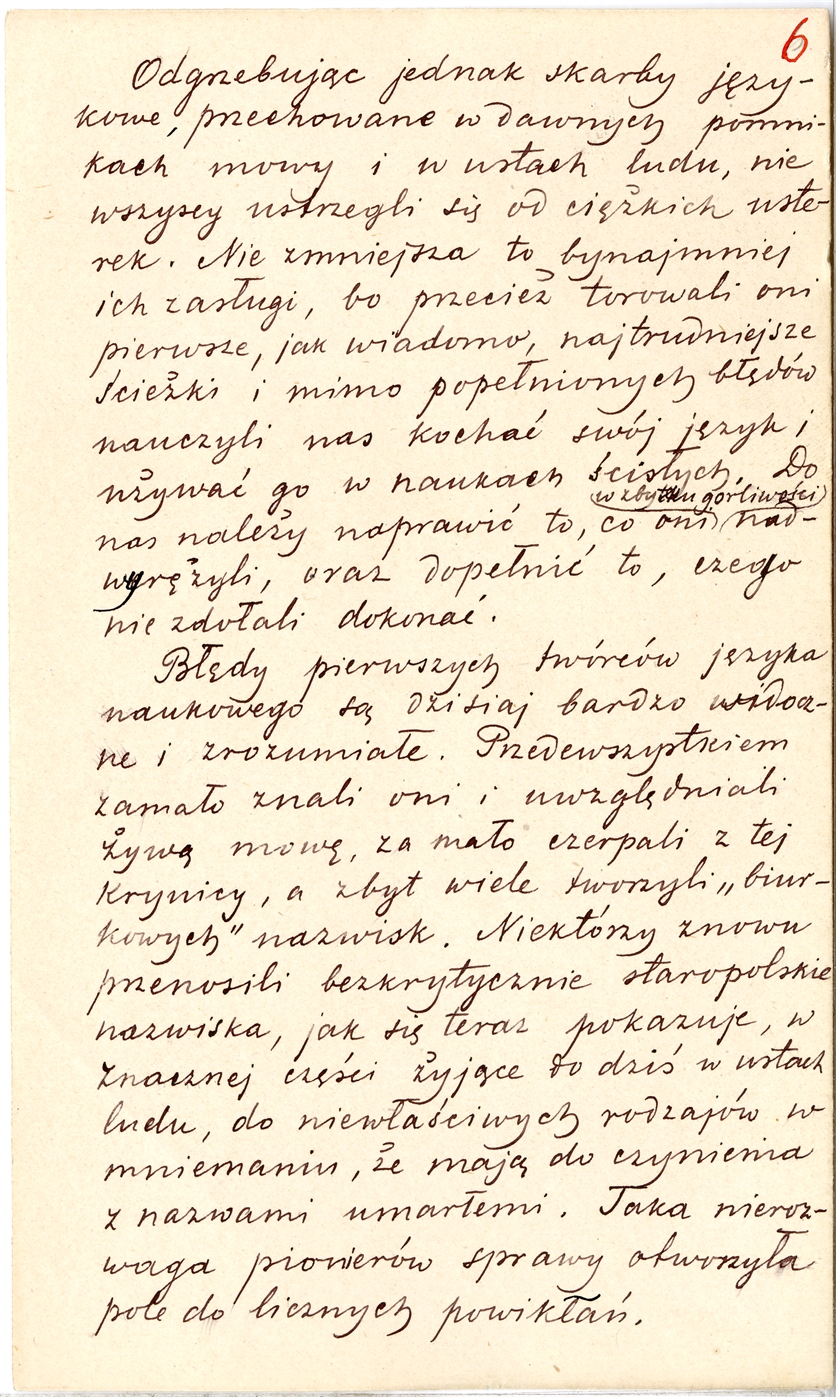 6
Odgrzebując jednak skarby języ-
kowe, przechowane w dawnych pomni-
kach mowy i w ustach ludu, nie
wszyscy ustrzegli się od ciężkich uste-
rek. Nie zmniejsza to bynajmniej
ich zasługi, bo przecież torowali oni
pierwsze, jak wiadomo, najtrudniejsze
ścieżki i mimo popełnionych błędów
nauczyli nas kochać swój język i
używać go w naukach ścisłych. Do
(w zbytku gorliwości)
nas należy naprawić to, co oni nad-
wyrężyli, oraz dopełnić to, czego
nie zdołali dokonać.
Błędy pierwszych twórców języka
naukowego są dzisiaj bardzo widocz-
ne i zrozumiałe. Przedewszystkiem
zamało znali oni i uwzględniali
żywą mowę, za mało czerpali z tej
krynicy, a zbyt wiele tworzyli „biur-
kowych" nazwisk. Niektórzy znowu
przenosili bezkrytycznie staropolskie
nazwiska, jak się teraz pokazuje, w
znacznej części żyjące do dziś w ustach
ludu, do niewłaściwych rodzajów w
mniemaniu, że mają do czynienia
z nazwami umarłemi. Taka nieroz-
waga pionierów sprawy otworzyła
pole do licznych powikłań.